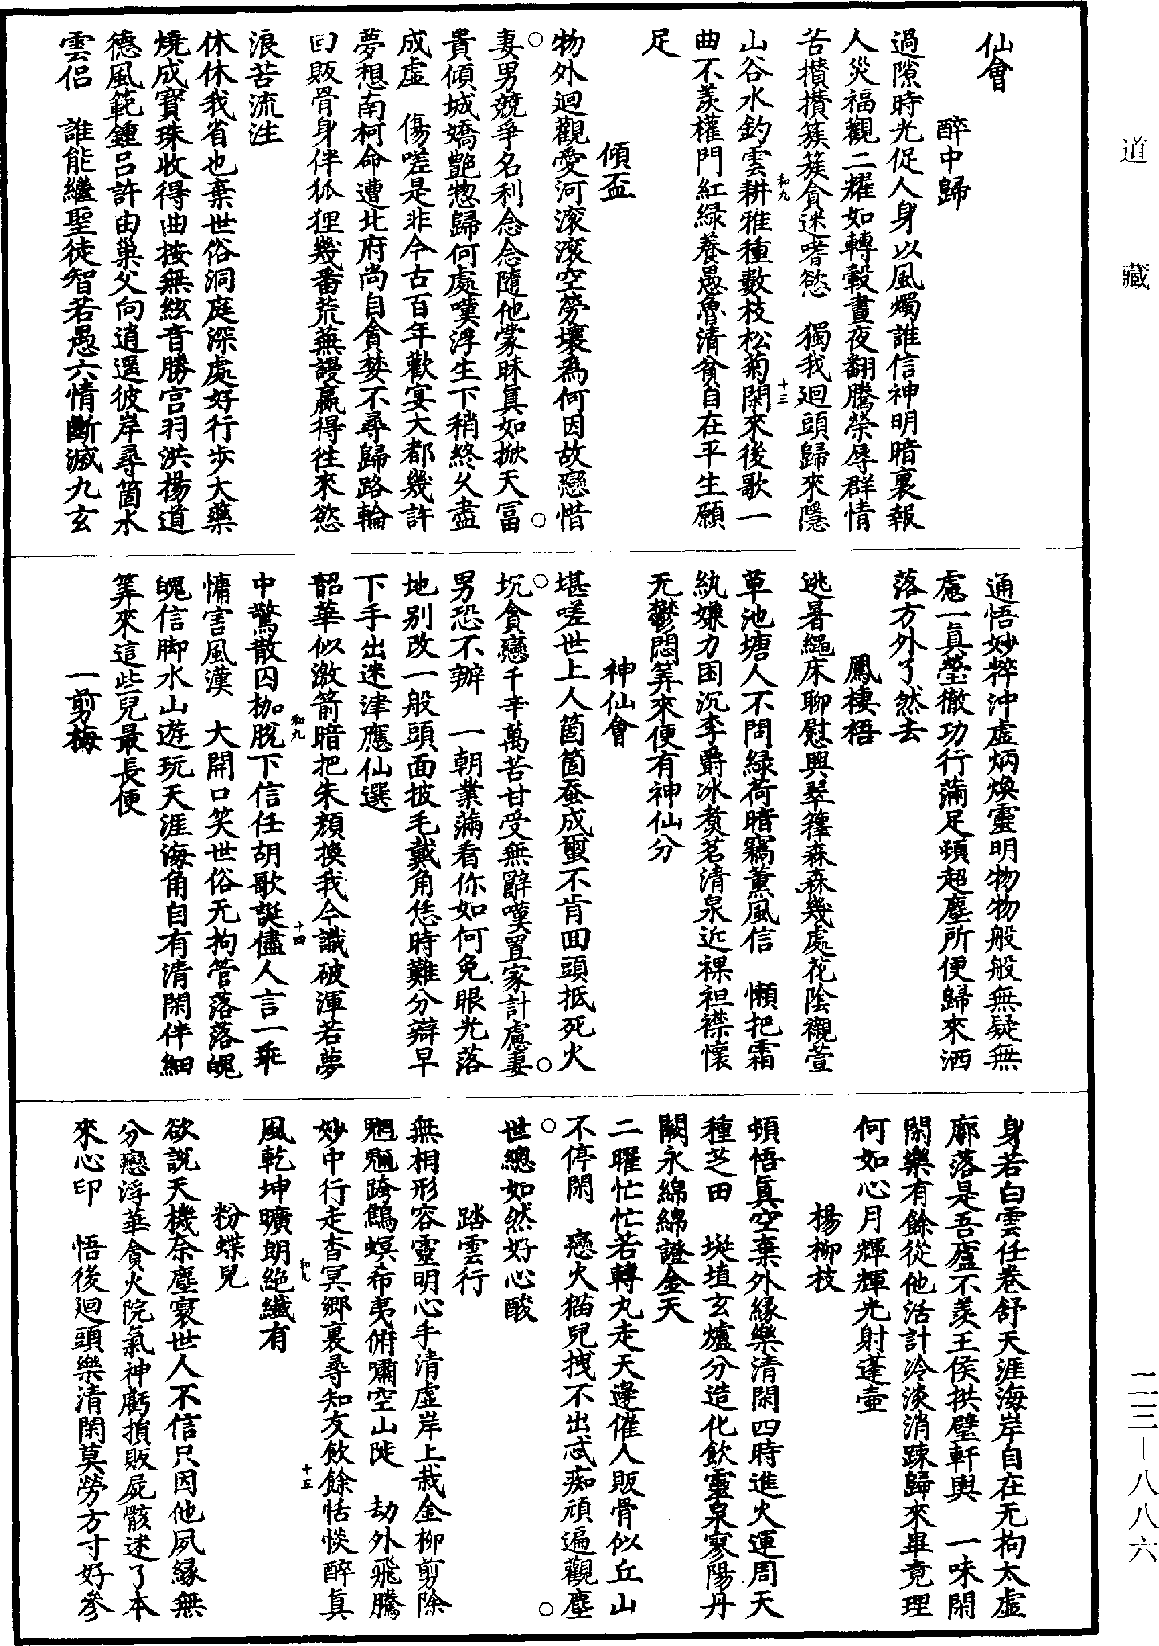 道藏
二三—八八六
仙會
醉中歸
過隙時光促人身以風燭誰信神明暗裏報
人災福觀二耀如轉轂晝夜翻騰榮辱群情
苦攢攢簇簇貪迷嗜慾　獨我迴頭歸來隱
山谷水釣雲耕雅種數枝松菊閑來後歌一
曲不羡權門紅綠養愚魯清貧自在平生願
足
傾盃
物外迴觀愛河滚滚空勞壤為何因故戀惜
妻男競爭名利念念隨他蒙昧真如掀天冨
貴傾城嬌艶惣歸何處嘆浮生下稍終久盡
成虛　傷嗟是非今古百年歡宴大都幾許
夢想南柯命遭北府尚自貪婪不尋歸路輪
回販骨身伴狐狸幾番荒蕪謾贏得往來慾
浪苦流注
休休我省也棄世俗洞庭深處好行步大藥
燒成寶珠收得曲按無絃音勝宫羽洪揚道
德風範鍾吕許由巢父向逍遥彼岸尋箇水
雲侣　誰能繼聖徒智若愚六情斷滅九玄
通悟妙粹沖虛炳煥靈明物物般般無疑無
慮一真瑩徹功行滿足頓超塵所便歸來洒
落方外了然去
鳳棲梧
逃暑繩床聊慰興翠籜森森幾處花陰襯萱
草池塘人不問綠荷暗竊薰風信　懶把霜
紈嫌力困沉李爵冰煑茗清泉近裸袒襟懷
无鬱悶筭來便有神仙分
神仙會
堪嗟世上人箇箇蚕成蠒不肯回頭抵死火
坑貪戀千辛萬苦甘受無辭嘆置家計慮妻
男恐不辦　一朝業滿看你如何免眼光落
地别改一般頭面披毛戴角恁時難分辯早
下手出迷津應仙選
韶華似激箭暗把朱顏換我今識破渾若夢
中驚散囚枷脫下信任胡歌誕儘人言一乘
慵害風漢　大開口笑世俗无拘管落落魄
魄信脚水山遊玩天涯海角自有清閑伴細
筭來這些兒最長便
一剪梅
身若白雲任卷舒天涯海岸自在无拘太虛
廓落是吾廬不羡王侯拱璧軒輿　一味閑
閑樂有餘從他活計冷淡消踈歸來畢竟理
何如心月輝輝光射蓬壺
楊柳枝
頓悟真空棄外緣樂清閑四時進火運周天
種芝田　埏埴玄爐分造化飲靈泉寥陽丹
闕永綿綿證金天
二曜忙忙若轉丸走天邊催人販骨似丘山
不停閑　戀火猫兒拽不出忒痴頑遍觀塵
世總如然好心酸
踏雲行
無相形容靈明心手清虛岸上栽金柳剪除
魍魎跨鷦螟希夷俯嘯空山陡　劫外飛騰
妙中行走杳冥鄉裏尋知友飲餘恬惔醉真
風乾坤曠朗絕纖有
粉蝶兒
欲説天機奈塵寰世人不信只因他夙緣無
分戀浮華貪火院氣神虧損販屍骸迷了本
來心印　悟後迴頭樂清閑莫勞方寸好參